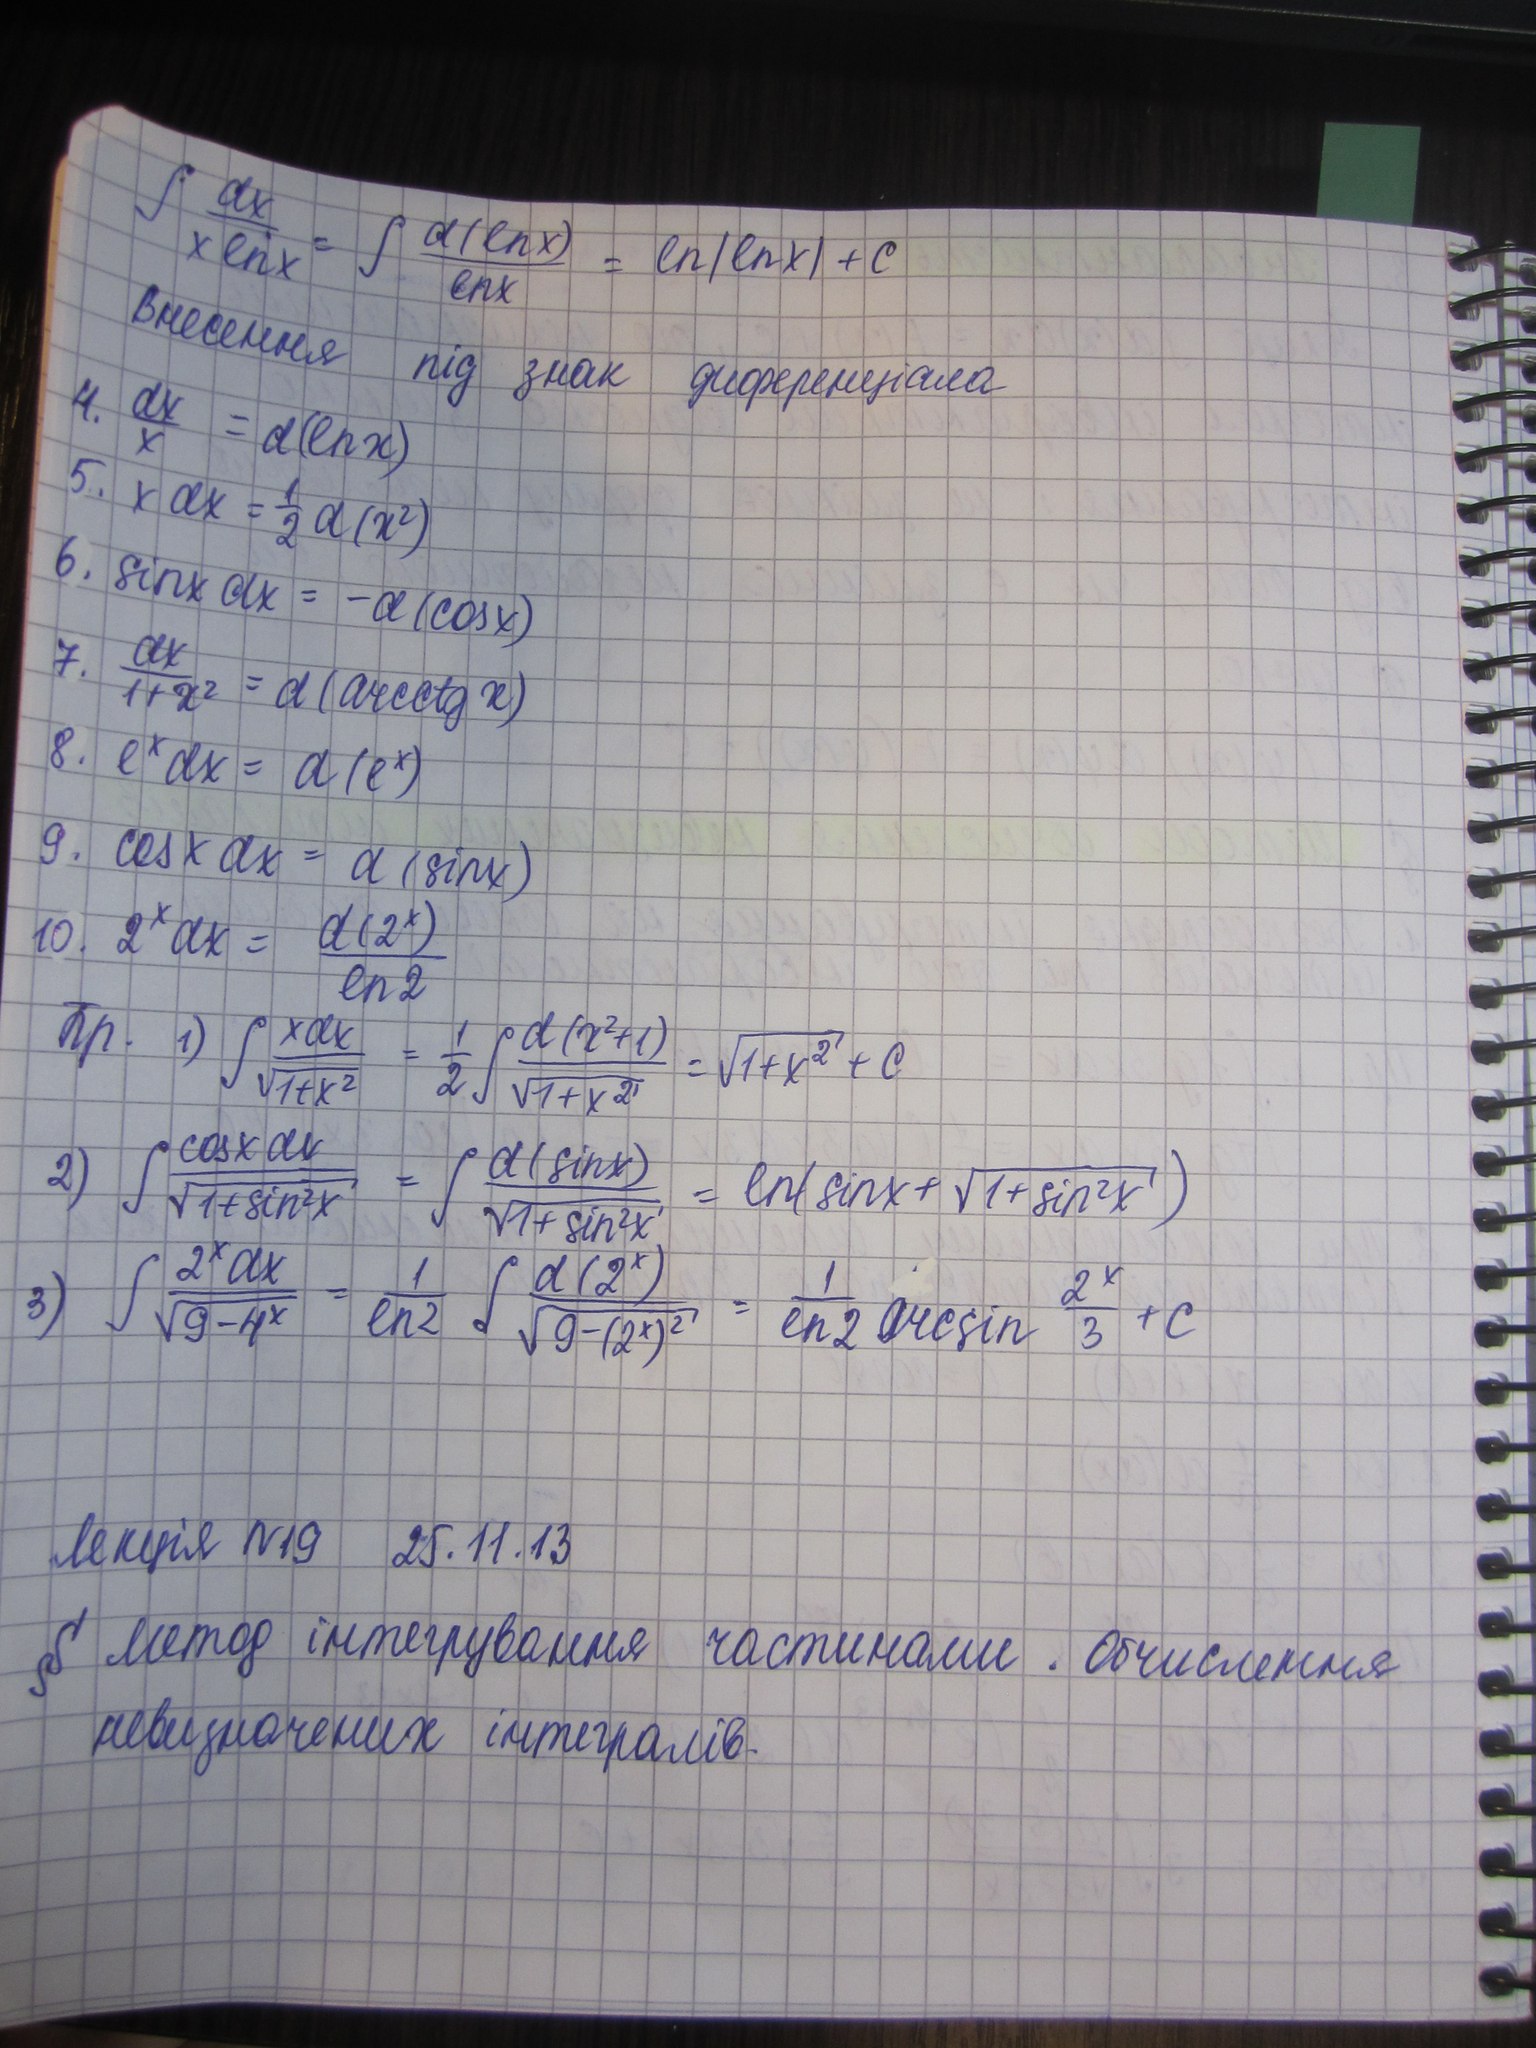 ∫ dx/(x ln x) = ∫ d(ln x)/ln x = ln|ln x| + C
Внесення під знак диференціала
4. dx/x = d(ln x)
5. x dx = 1/2 d(x²)
6. sinx dx = -d(cosx)
7. dx/(1+x²) = d(arcctg x)
8. eˣ dx = d(eˣ)
9. cosx dx = d(sinx)
10. 2ˣ dx = d(2ˣ)/ln2
Пр. 1) ∫ xdx/√(1+x²) = 1/2 ∫ d(x²+1)/√(1+x²) = √(1+x²) + C
2) ∫ cosx dx/√(1+sin²x) = ∫ d(sinx)/√(1+sin²x) = ln(sinx + √(1+sin²x))
3) ∫ 2ˣdx/√(9-4ˣ) = 1/ln2 ∫ d(2ˣ)/√(9-(2ˣ)²) = 1/ln2 arcsin 2ˣ/3 + C
Лекція №19 25.11.13
§ Метод інтегрування частинами. Обчислення
невизначених інтегралів.